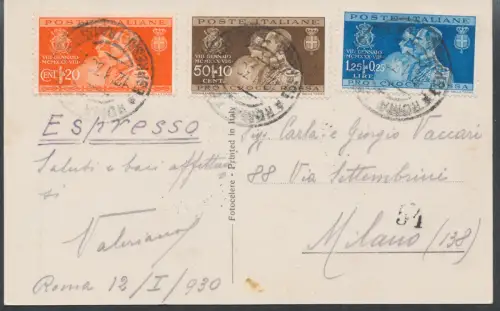 POSTE ITALIANE
VIII GENNAIO
MCMXXX-VIII
CENT 20
POSTE ITALIANE
VIII GENNAIO
MCMXXX-VIII
50+10
CENT.
PRO CROCE ROSSA
POSTE ITALIANE
VIII GENNAIO
MCMXXX-VIII
1,25+0,25
LIRE
PRO CROCE ROSSA
ROMA
Espresso
Saluti e baci affettuo
si
Valeriano
Roma 12/I/930
Fotocelere - Printed in Italy
Sigg. Carla e Giorgio Vaccari
88 Via Settembrini
54
Milano (138)